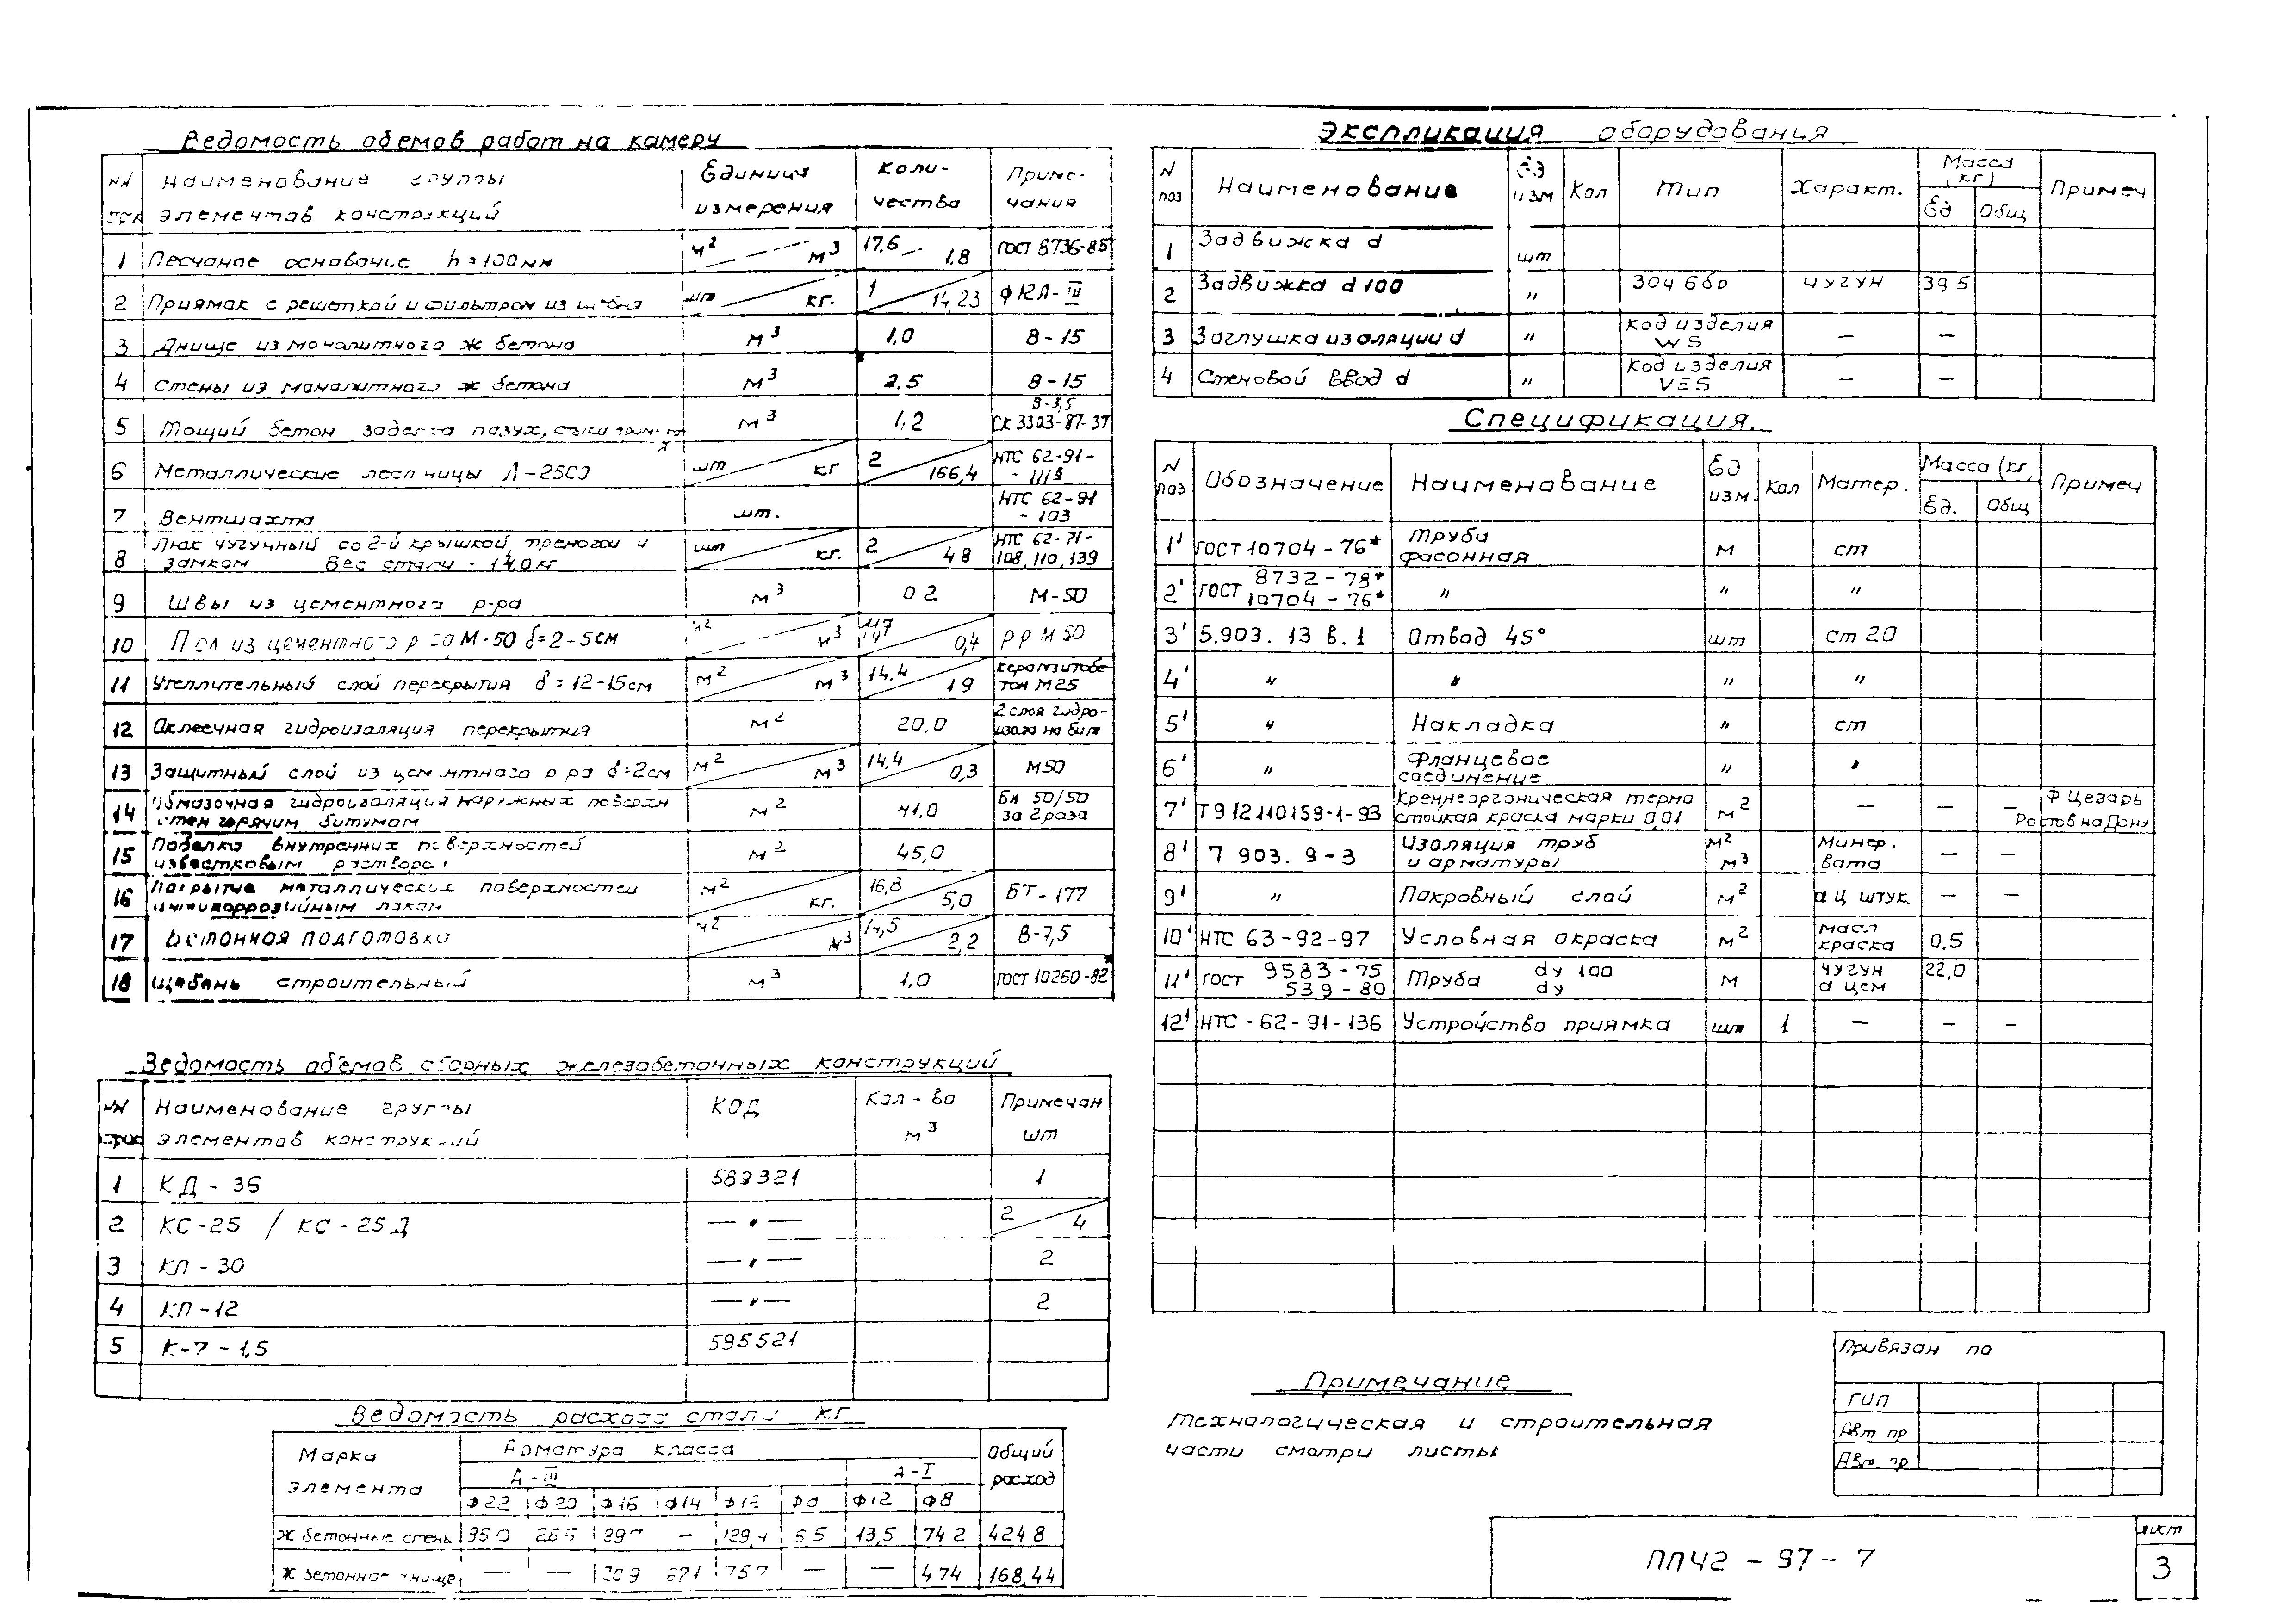 Ведомость обемов работ на камеру
NN Наименование группы Единица Коли- Приме-
элементов конструкций измерения чества чания
1 Песчаное основание h=100мм м² м³ 17,6 1,8 ГОСТ 8736-85
2 Приямок с решеткой и фильтром из щебня шт кг. 1 14,23 Ф12А-III
3 Днище из монолитного ж бетона м³ 1,0 В-15
4 Стены из монолитного ж бетона м³ 2,5 В-15
5 Тощий бетон заделка пазух, м³ 1,2 В-3,5
СК 3303-87-37
6 Металлические лестницы Л-25 шт кг 2 166,4 НТС 62-91-
- 111
7 Вентшахта шт. НТС 62-91
- 103
8 Люк чугунный со 2-й крышкой, треногой и шт кг. 2 48 НТС 62-71-
замком Вес стали - 14,0кг 108, 110, 139
9 Швы из цементного р-ра м³ 0 2 М-50
10 Пол из цементного р ра М-50 δ=2-5см м² м³ 11,7 0,4 Р Р М 50
11 Утеплительный слой перекрытия δ=12-15см м² м³ 14.4 1 9 керамзитобе
тон М25
12 Оклеечная гидроизоляция перекрытия м² 20,0 2 слоя гидро-
изола на бит
13 Защитный слой из цементного р ра δ=2см м² м³ 14,4 0,3 М50
14 Обмазочная гидроизоляция наружных поверхн м² 41.0 Бн 50/50
стен горячим битумом за 2 раза
15 Побелка внутренних поверхностей м² 45,0
известковым раствором
16 Покрытие металлических поверхностей м² кг. 16,8 5,0 БТ-177
антикоррозийным лаком
17 Бетонная подготовка м² м³ 14,5 2,2 В-7,5
18 Щебень строительный м³ 1.0 ГОСТ 10260-82*
Ведомость обемов сборных железобетонных конструкций
NN Наименование группы КОД Кол-во Примечан
строк элементов конструкций м³ шт
1 КД-36 583321 1
2 КС-25 / КС-25Д — " — 2 4
3 КП-30 — " — 2
4 КП-12 — " — 2
5 К-7-1,5 595521
Ведомость расхода стали КГ
Марка Арматура класса Общий
элемента А-III А-I расход
Ф22 Ф20 Ф16 Ф14 Ф12 Ф12 Ф8
ж бетонные стены 95 0 26 5 — 129,4 5 5 13,5 74 2 424 8
ж бетонное днище — — 20 9 67 1 75 7 — — 47 4 168,44
Экспликация оборудования
N Наименование Ед Кол Тип Характ. Масса (кг) Примеч
поз изм Ед Общ
1 Задвижка d шт
2 Задвижка d 100 " 30ч 6бр чугун 39 5
3 Заглушка изоляции d " Код изделия — —
WS
4 Стеновой ввод d " Код изделия — —
VES
Спецификация.
N Обозначение Наименование Ед Кол Матер. Масса (кг, Примеч
поз изм. Ед. Общ
1' ГОСТ 10704-76* Труба м ст
фасонная
2' ГОСТ 8732-78* " " "
10704-76*
3' 5.903. 13 в. 1 Отвод 45° шт ст 20
4' " " " "
5' " Накладка " ст
6' " Фланцевое " "
соединение
7' Т 912110159-1-93 Кремнеорганическая термо м² — — — Ф Цезарь
стойкая краска марки 0,01 Ростов на Дону
8' 7 903. 9-3 Изоляция труб м² Минер. — —
и арматуры м³ вата
9' " Покровный слой м² а ц штук — —
10' НТС 63-92-97 Условная окраска м² масл 0.5
краска
11' ГОСТ 9583-75 Труба dу 100 м чугун 22,0
539-80 dу а цем
12' НТС-62-91-136 Устройство приямка шт 1 — — —
Примечание
Технологическая и строительная
части смотри листы
Привязан по
ГИП
Авт пр
Авт пр
ППЧ2-97-7
лист
3